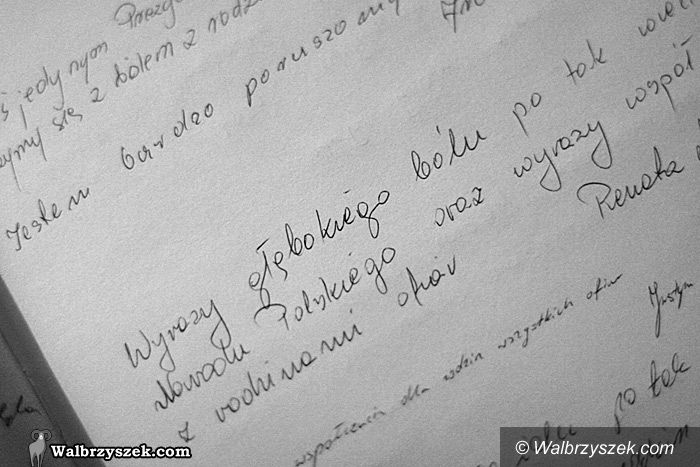 jedynym
się z bólem z rodz
Jestem bardzo poruszony
Wyrazy głębokiego bólu po tak
Narodu Polskiego oraz wyrazy współ
z rodzinami ofiar Renata
współczucia dla rodzin wszystkich ofiar Justyn
po tak
Walbrzyszek.com
© Walbrzyszek.com